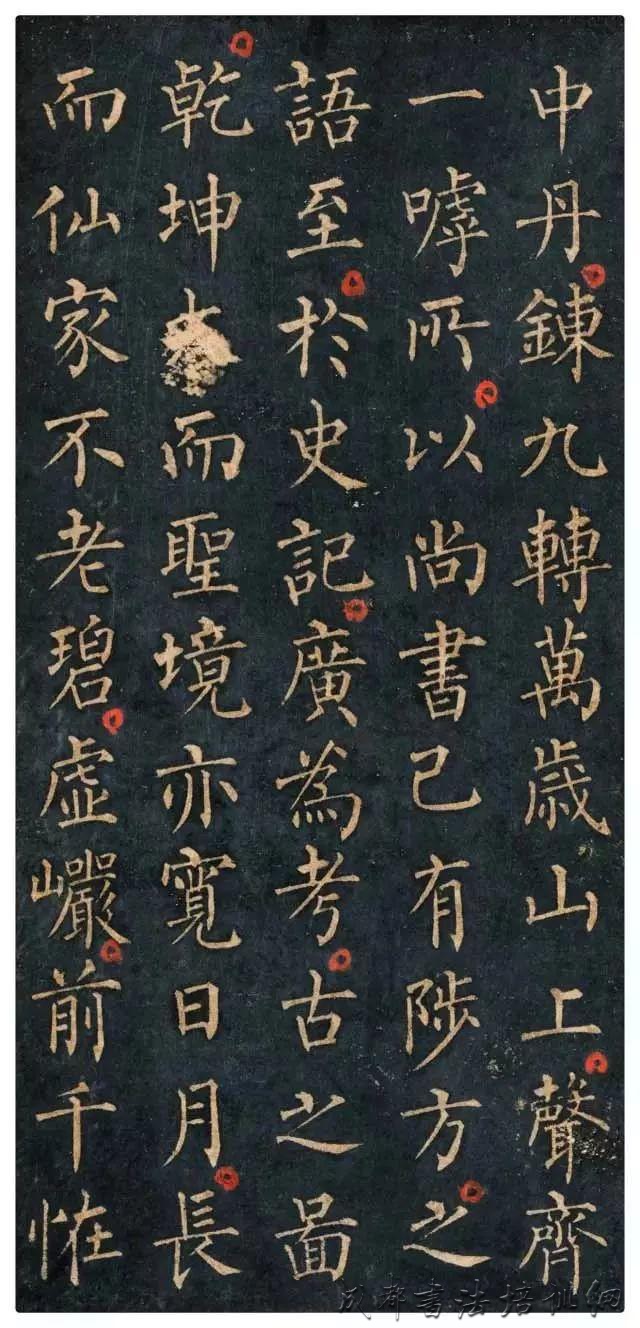 申丹鍊九轉萬歲山上聲齊
一嘑所以尚書已有陟方之
語至於史記廣為考古之圖
乾坤而聖境亦寬日月長
而仙家不老碧虛巖前千恠
成都書法培训網